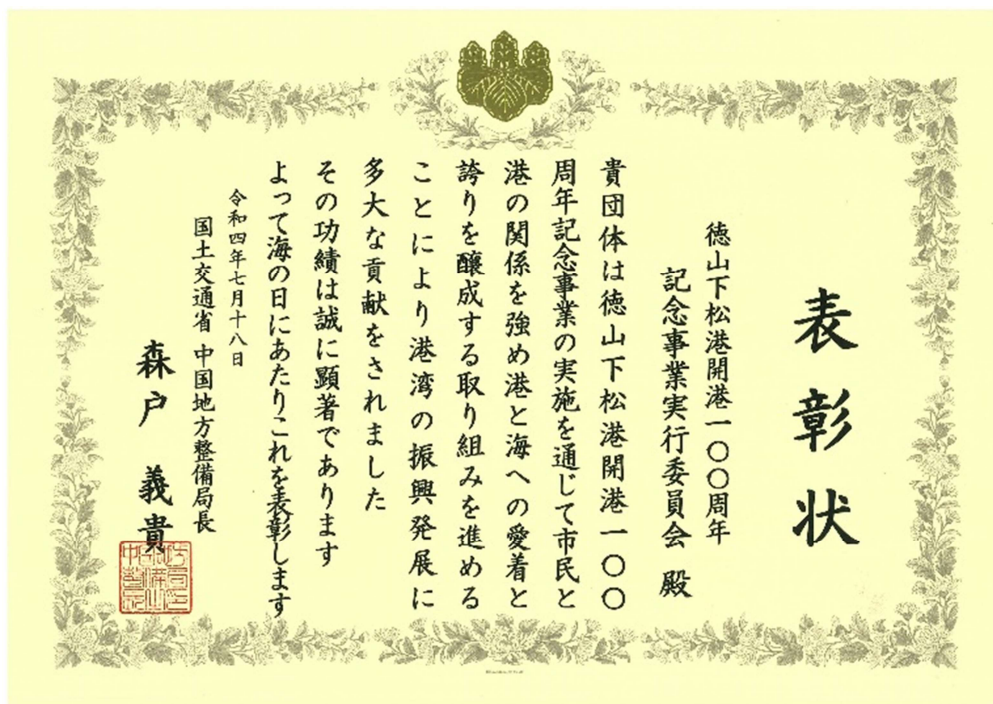 表彰状
徳山下松港開港一〇〇周年
記念事業実行委員会 殿
貴団体は徳山下松港開港一〇〇
周年記念事業の実施を通じて市民と
港の関係を強め港と海への愛着と
誇りを醸成する取り組みを進める
ことにより港湾の振興発展に
多大な貢献をされました
その功績は誠に顕著であります
よって海の日にあたりこれを表彰します
令和四年七月十八日
国土交通省 中国地方整備局長
森戸 義貴